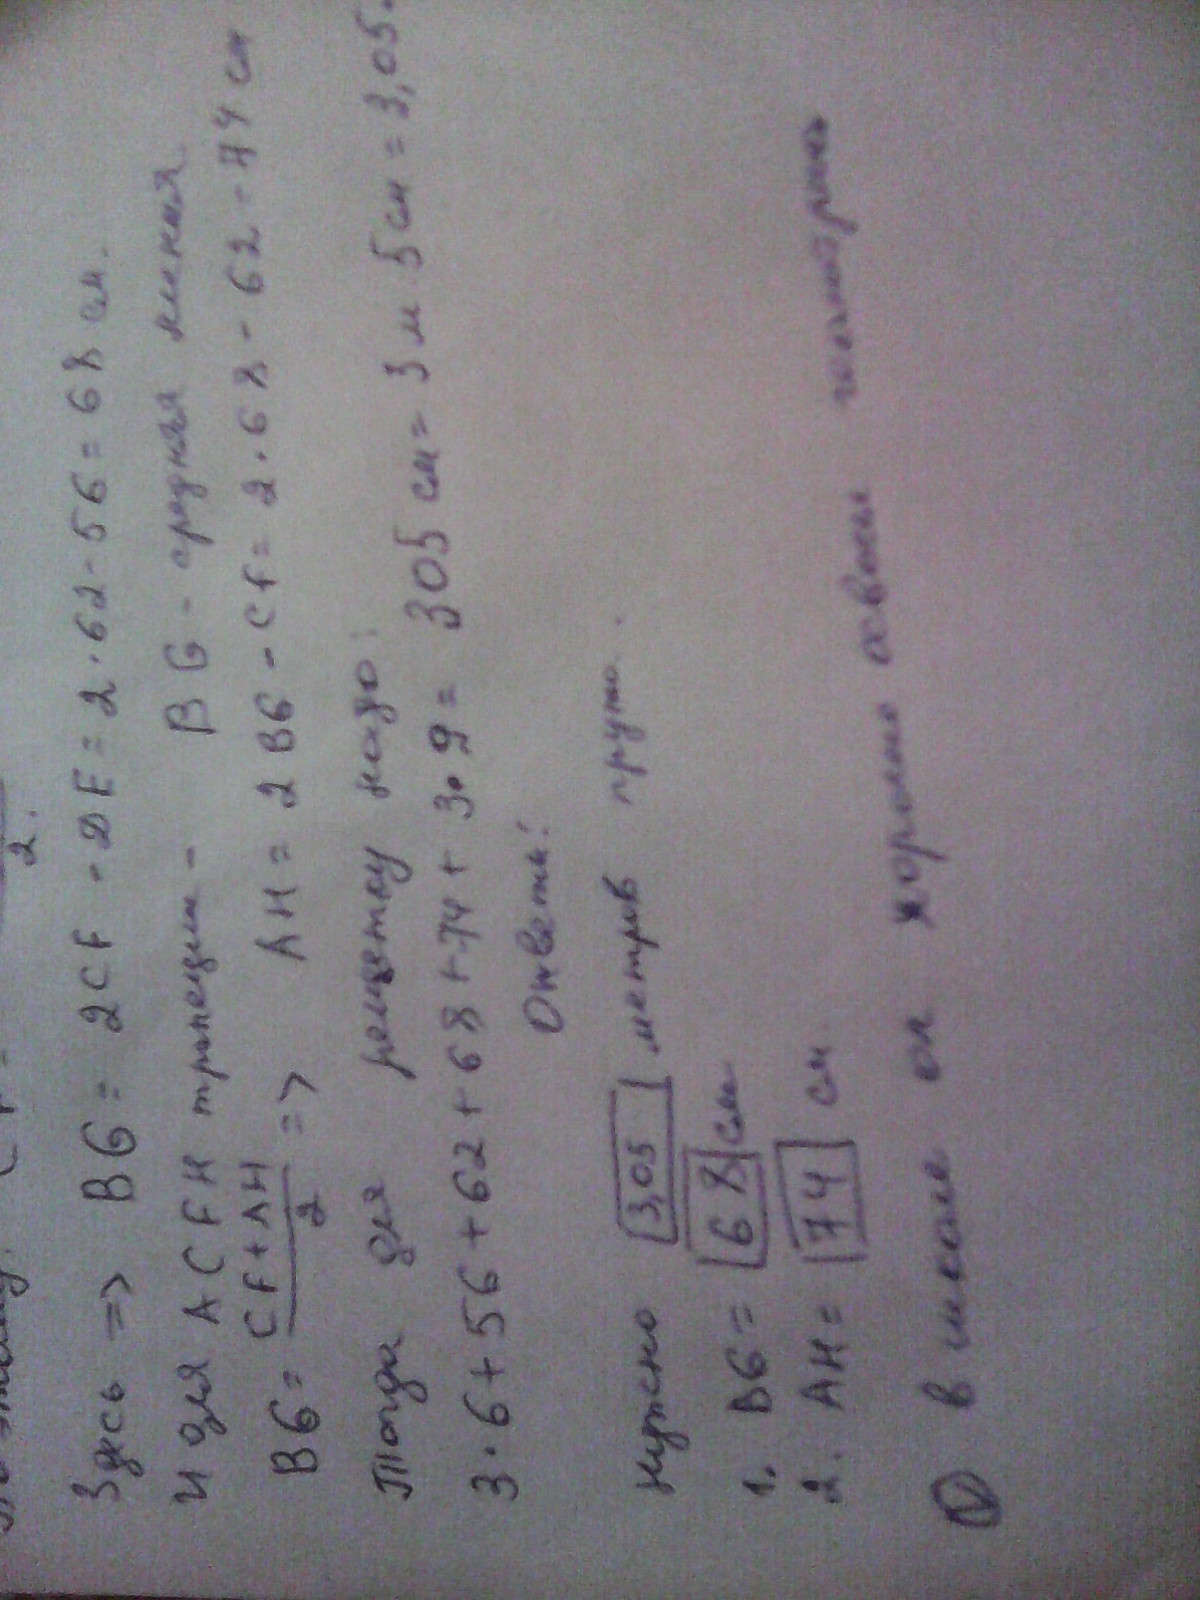 2.
Здесь => BG = 2CF - DE = 2·62-56=68 см.
и для ACFH трапеции - BG - средняя линия
BG = CF+AH / 2 => AH = 2BG - CF = 2·68-62-74 см
Тогда для решетку надо:
3·6+56+62+68+74+3·9= 305 см= 3 м 5см = 3,05.
Ответ:
Нужно 3,05 метров прута.
1. BG = 68 см
2. AH = 74 см
в школе он хорошо